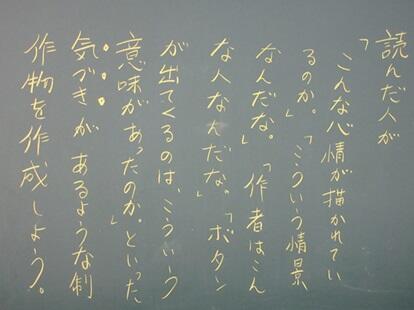 読んだ人が
「こんな心情が描かれてい
るのか。」「こういう情景
なんだな。」「作者はこん
な人なんだな。」「ボタン
が出てくるのは、こういう
意味があったのか。」といった
気づきがあるような制
作物を作成しよう。